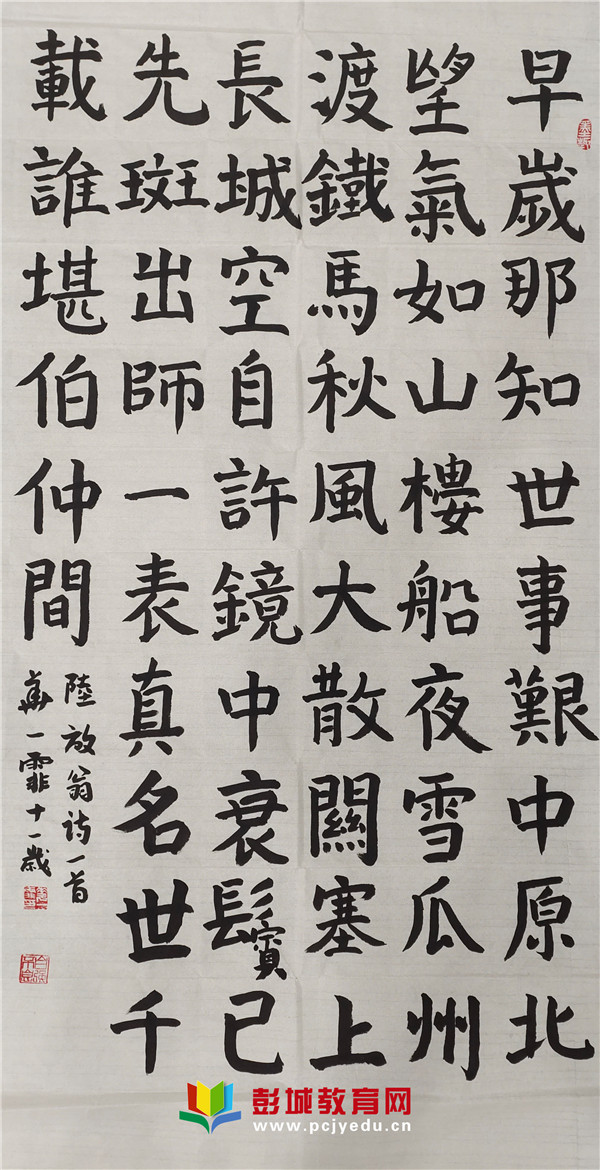 早歲那知世事艱中原北
望氣如山樓船夜雪瓜州
渡鐵馬秋風大散關塞上
長城空自許鏡中衰鬢已
先斑出師一表真名世千
載誰堪伯仲間
陸放翁诗一首
華一霏十一歲
彭城教育网
www.pcjyedu.cn